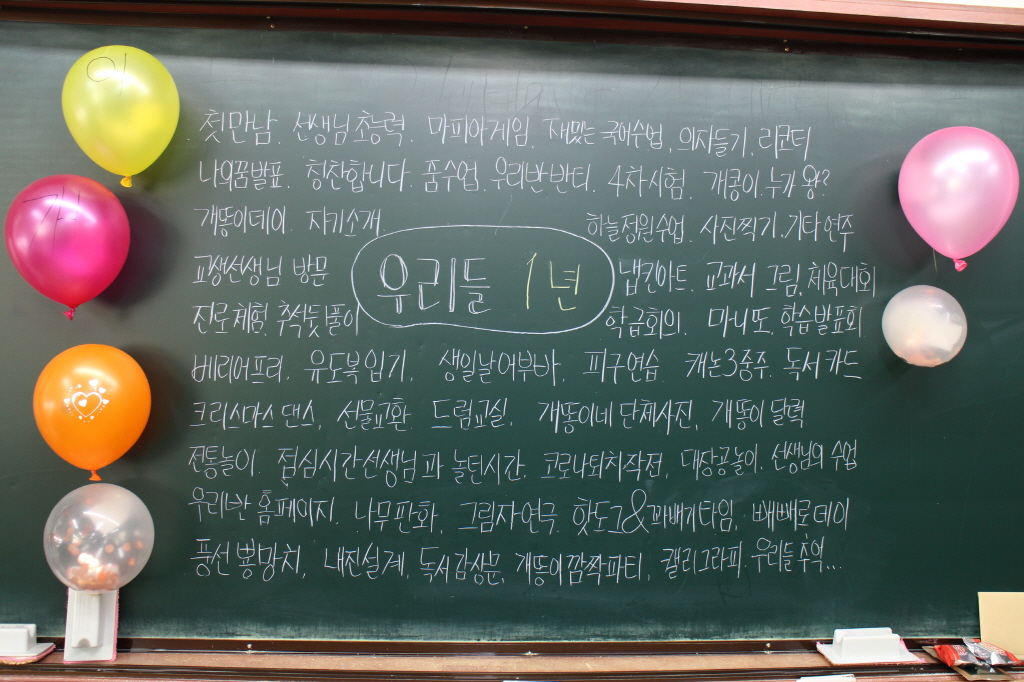 이
첫만남. 선생님초능력. 마피아게임. 재밌는 국어수업, 의자들기, 리코더
나의꿈발표. 칭찬합니다. 품수업. 우리반반티. 4차시험. 개콩이.누가 왕?
개똥이데이. 자기소개
하늘정원수업. 사진찍기.기타연주
감
교생선생님 방문
우리들 1년
냅킨아트. 교과서 그림, 체육대회
진로체험. 추석뜻풀이
학급회의. 마니또, 학습발표회
베리어프리. 유도복입기. 생일날어부바. 피구연습. 캐논3중주. 독서카드
크리스마스댄스, 선물교환. 드럼교실. 개똥이네단체사진, 개똥이달력
전통놀이. 점심시간선생님과 놀던시간. 코로나퇴치작전, 대장공놀이. 선생님의 수업
우리반 홈페이지. 나무판화. 그림자연극. 핫도그&꽈배기타임, 빼빼로데이
풍선뿅망치, 내진설계, 독서감상문, 개똥이깜짝파티, 캘리그라피. 우리들추억...